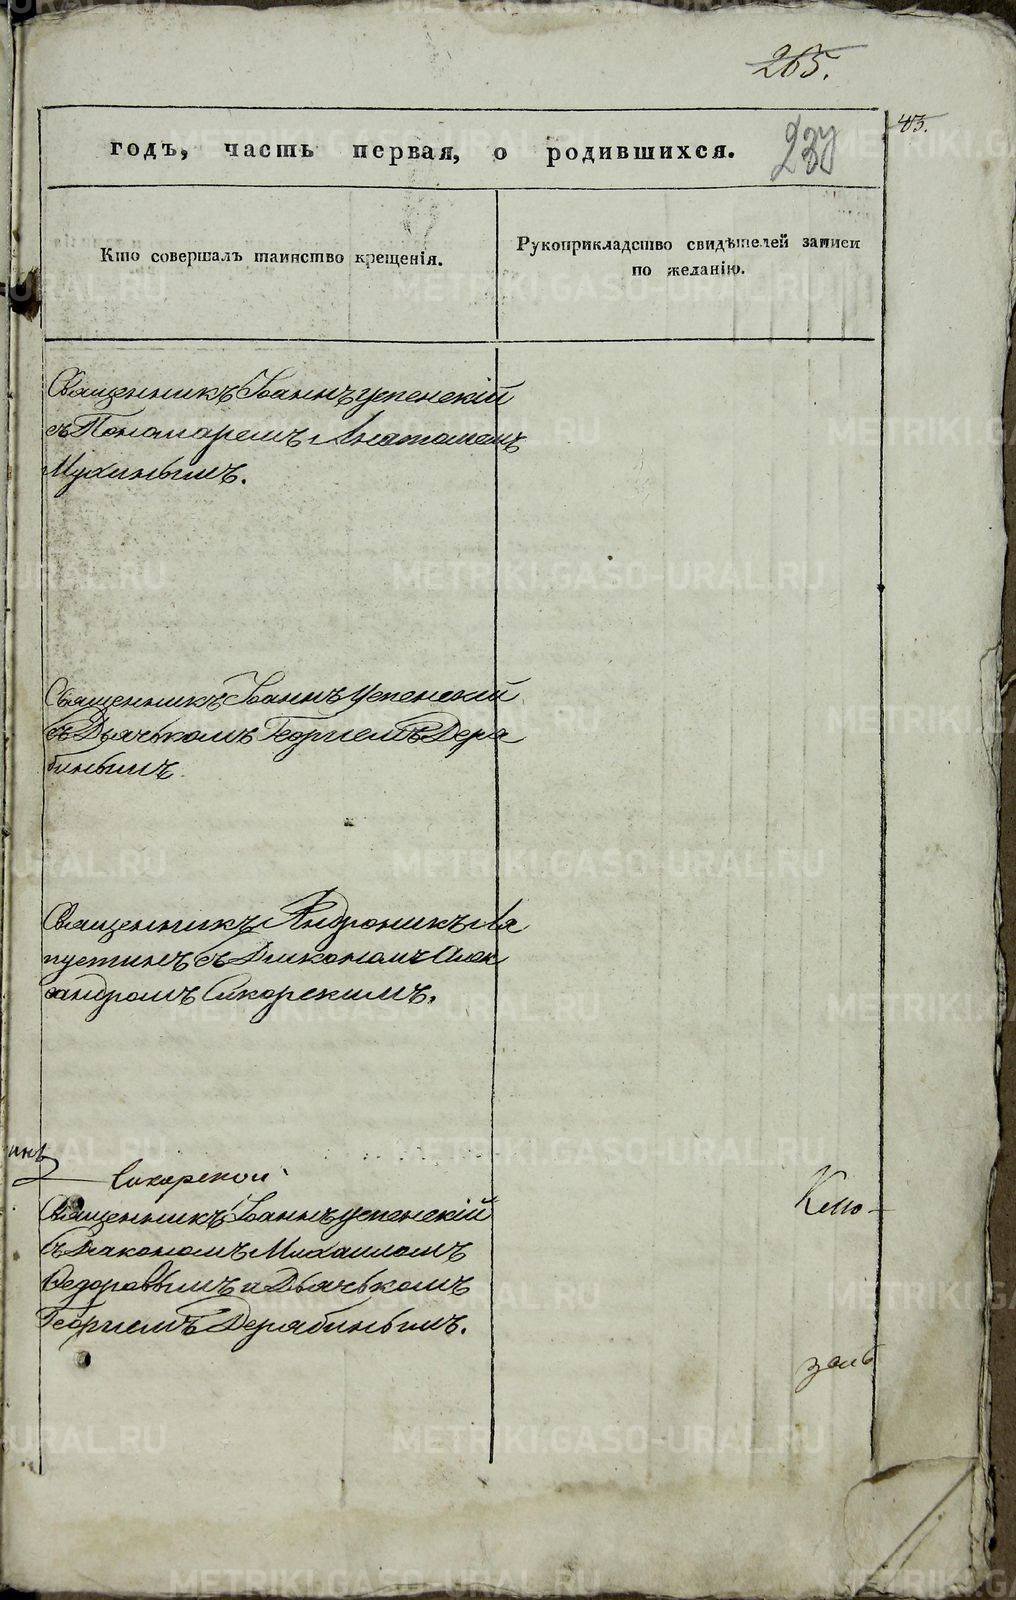 265.
43.
годъ, часть первая, о родившихся. 237
Кто совершалъ таинство крещенія.
Рукоприкладство свидѣтелей записи
по желанію.
Священникъ Іваннъ Успенскій
съ Пономаремъ Анатолиемъ
Мухинымъ.
Священникъ Іваннъ Успенскій
съ Дьячькомъ Георгиемъ Дера
бинымъ
Священникъ Андроникъ Ля
пустинъ съ Дияконом Алек
сандромъ Сикорскимъ.
инъ
Сикорской
Священникъ Іваннъ Успенскій
съ Диакономъ Михаиломъ
Федоравымъ и Дьячькомъ
Георгиемъ Дерабинымъ.
METRIKI.GASO-URAL.RU